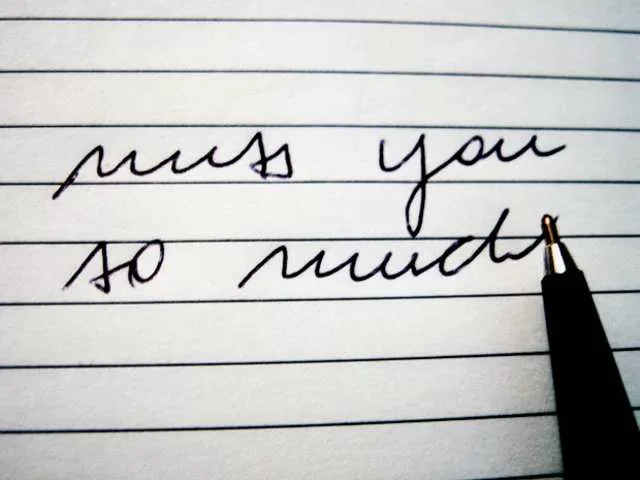 miss you
so much